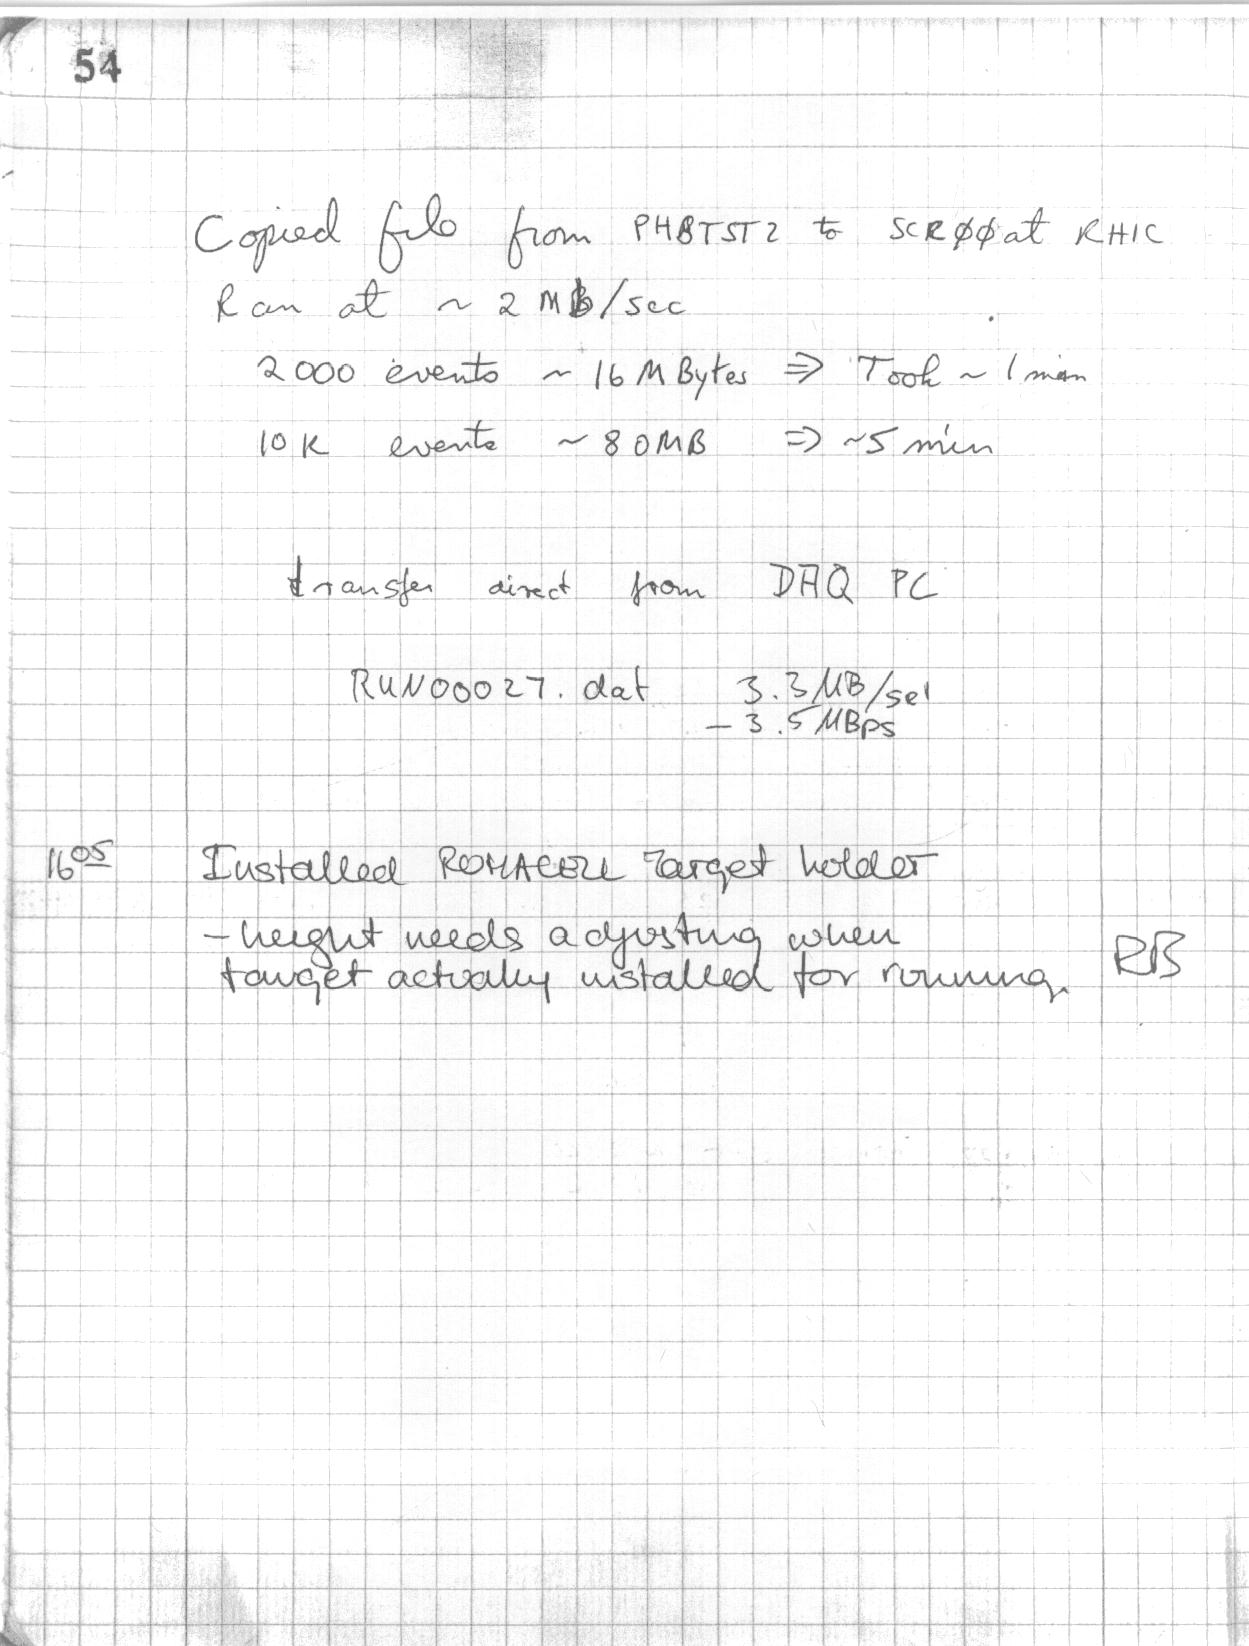 54
Copied file from PHBTST2 to SCRØØ at RHIC
Ran at ~ 2 Mb/sec
2000 events ~ 16 MBytes ⇒ Took ~ 1 min
10K events ~ 80MB ⇒ ~5 min
transfer direct from DAQ PC
RUN00027.dat 3.3 MB/sec
– 3.5 MBps
16 05 Installed ROHACELL Target holder
– height needs adjusting when
target actually installed for running. RB